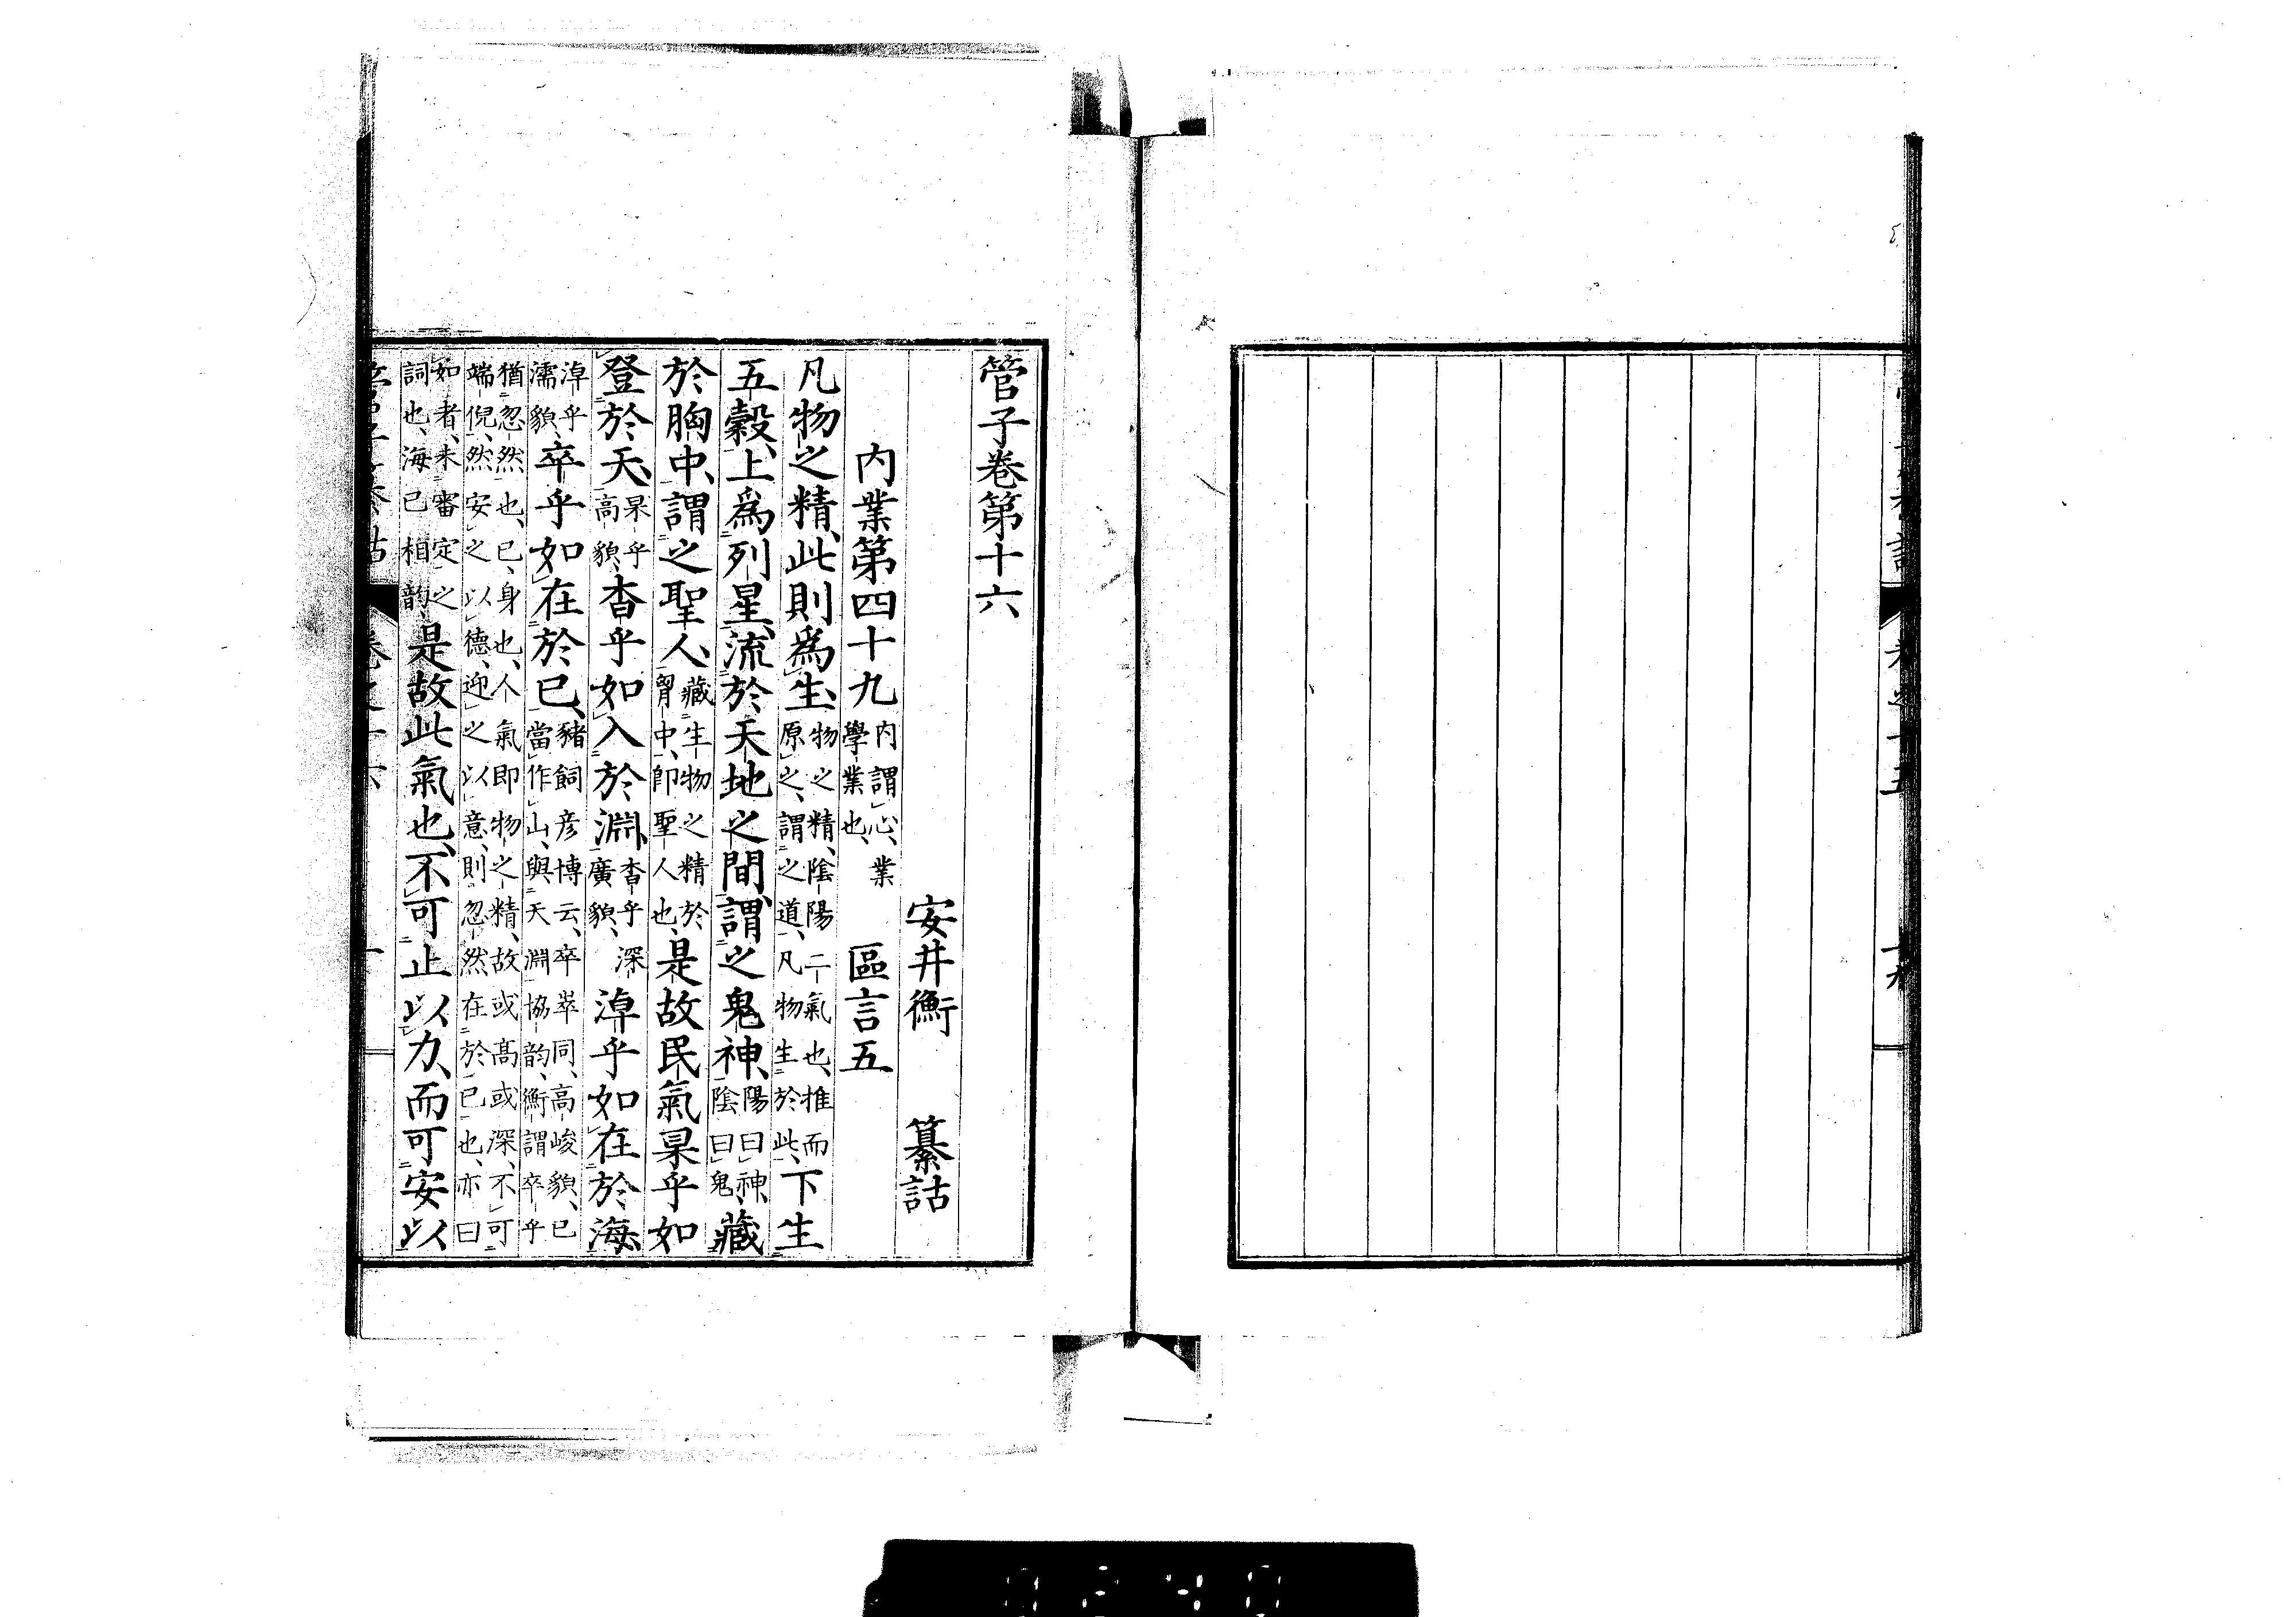 管子卷第十六
安井衡　纂詁
内業第四十九内謂心、業學業也、區言五
凡物之精、此則爲生、物之精、陰陽二氣也、推而原之、謂之道、凡物生於此、下生
五穀、上爲列星、流於天地之間、謂之鬼神、陽曰神、陰曰鬼、藏
於胸中、謂之聖人、藏生物之精於胷中、卽聖人也、是故民氣杲乎如
登於天、杲乎高貌、杳乎如入於淵、杳乎深廣貌、淖乎如在於海、
淖乎濡貌、卒乎如在於已、豬飼彦博云、卒崒同、高峻貌、已當作山、與天淵協韵、衡謂卒乎
猶忽然也、已、身也、人氣卽物之精、故或高或深、不可端倪、然安之以德、迎之以意、則忽然在於已也、亦曰
如者、未審定之詞也、海已相韵、是故此氣也、不可止以力、而可安以